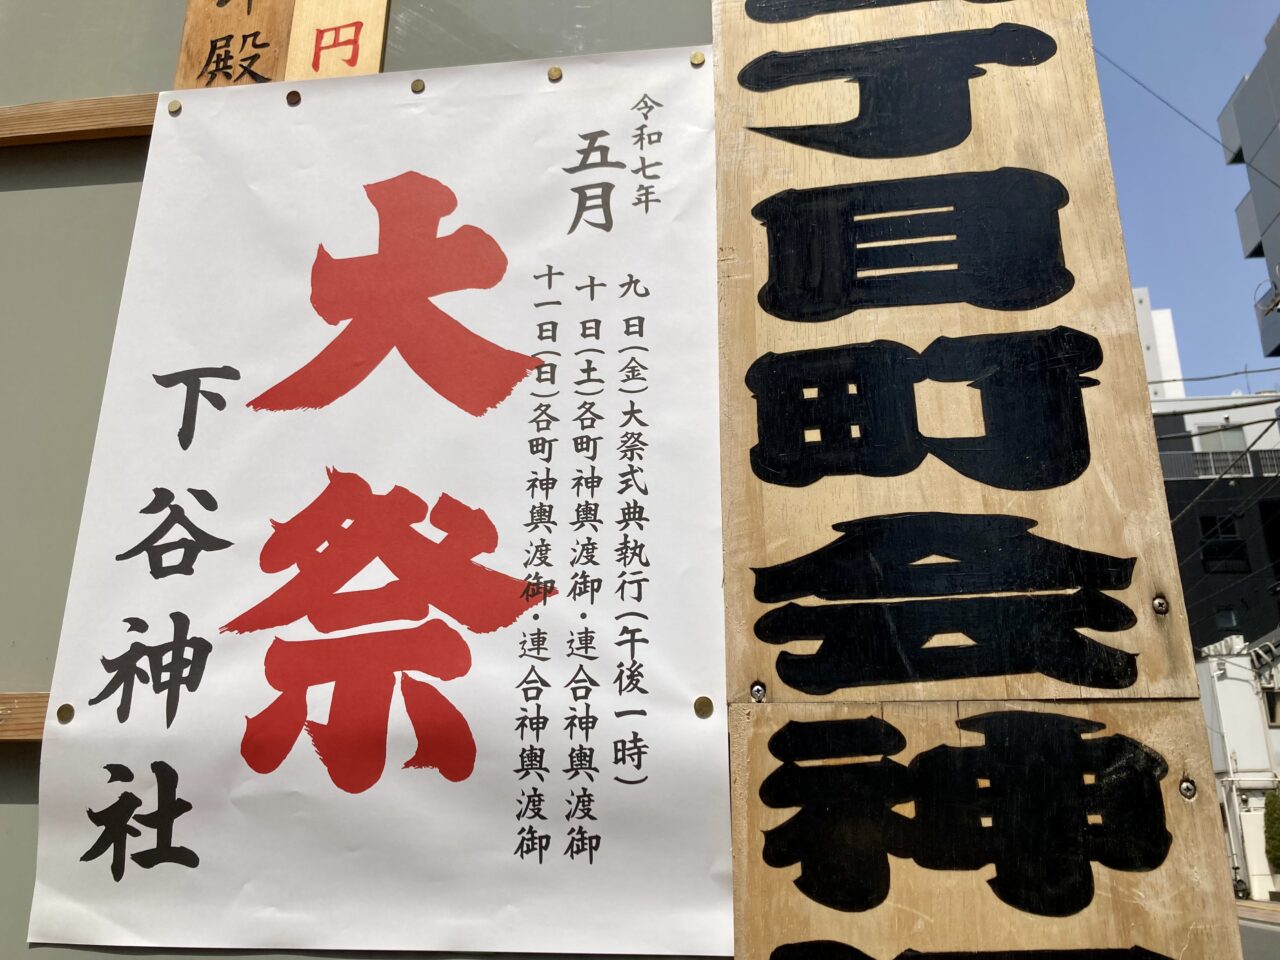 丁目町会神
殿
円
令和七年
五月
九日(金)大祭式典執行(午後一時)
十日(土)各町神輿渡御・連合神輿渡御
十一日(日)各町神輿渡御・連合神輿渡御
大祭
下谷神社